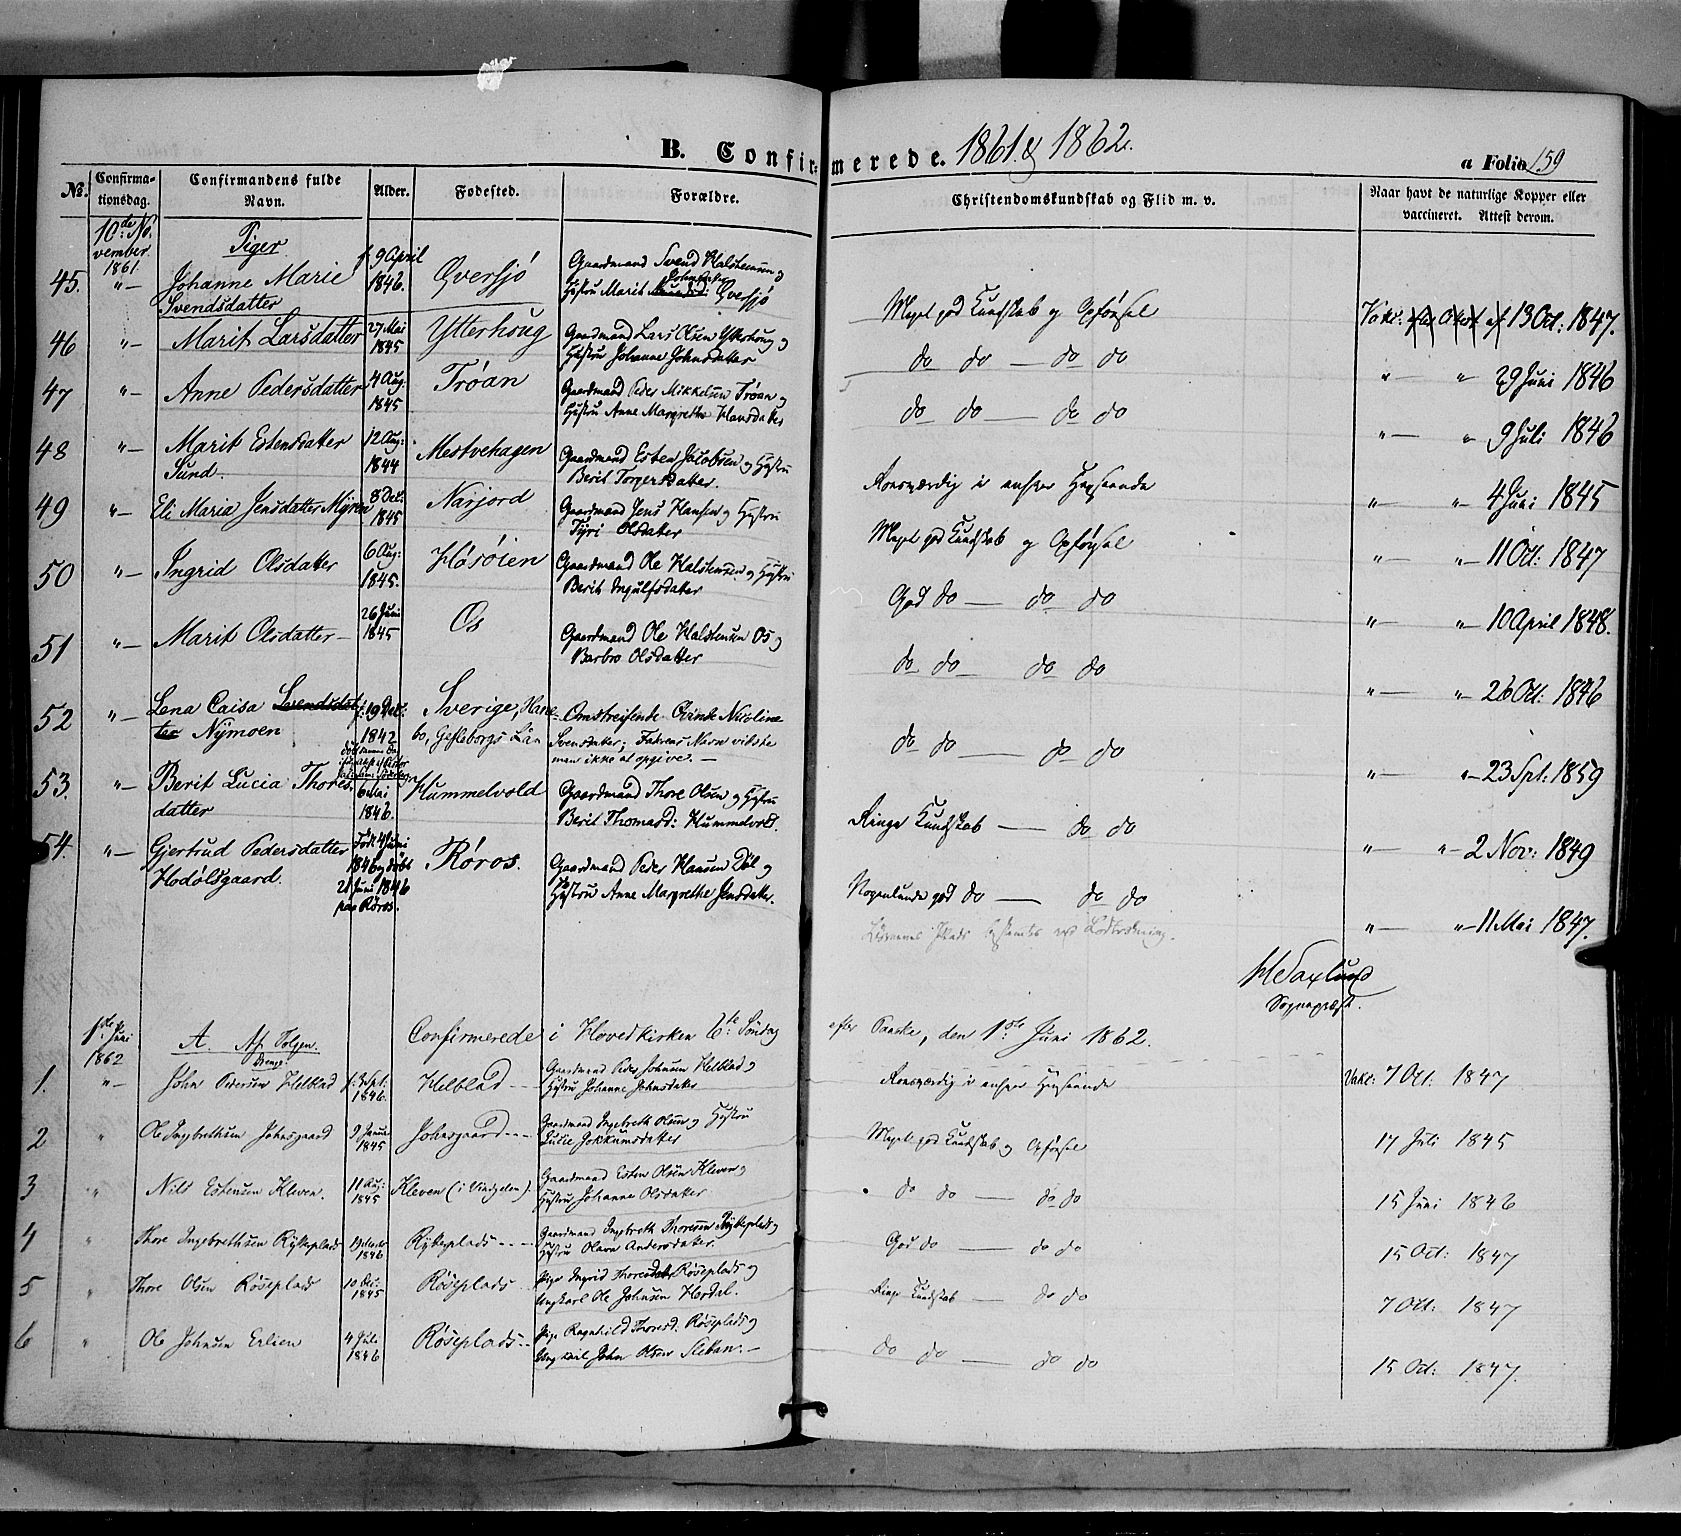 B. Confirmerede. 1861 & 1862.
a Folio 159
No. Confirmationsdag. Confirmandens fulde Navn. Alder. Fødested. Forældre. Christendomskundskab og Flid m. v. Naar havt de naturlige Kopper eller vaccineret. Attest derom.
10de November 1861.
Piger
45. "— Johanne Marie Svendsdatter f 9 April 1846. Qversjø Gaardmand Svend Halstensen og Hustru Marit Qversjø Meget god Kundskab og Opførsel Vakc: 13 Oct: 1847.
46 "— Marit Larsdatter 27 Mai 1845 Ytterhoug Gaardmand Lars Olsen Ytterhoug og Hustru Johanne Johnsdatter do do — do do "— " 29 Juni 1846
47 "— Anne Pedersdatter 4 Aug: 1845 Trøan Gaardmand Peder Mikkelsen Trøan og Hustru Anne Margrethe Hansdatter do do — do do "— " 9 Juli 1846
48 "— Marit Estensdatter Sund. 12 Aug: 1844 Mestvehagen Gaardmand Esten Jacobsen og Hustru Berit Torgersdatter. Roesværdig i enhver Henseende "— "— 4 Juni 1845
49 "— Eli Maria Jensdatter Myren 8 Dec: 1845 Narjord Gaardmand Jens Hansen og Hustru Tyri Olsdatter Meget god Kundskab og Opførsel "— "— 11 Oct: 1847
50 "— Ingrid Olsdatter 6 Aug: 1845. Høsøien Gaardmand Ole Halstensen og Hustru Berit Ingulfsdatter God do — do do "— "— 10 April 1848.
51 "— Marit Olsdatter— 26 Juni 1845 Os Gaardmand Ole Halstensen Os og Barbro Olsdatter do do do do "— "— 26 Oct. 1846
52 "— Lena Caisa Svendsdatter Nymoen f: 19 Dec: 1842 Sverige, Hanebo, Gefleborgs Län Omstreifende Qvinde Nicoline Svensdatter; Faderens Navn vilste man ikke at opgive. — do do — do do "— "— 23 Spt. 1859
53. "— Berit Lucia Thoresdatter 6 Mai 1846. Hummelvold Gaardmand Thore Olsen og Hustru Berit Thomasd: Hummelvold. Ringe Kundskab — do do "— "— 2 Nov: 1849
54. "— Gjertrud Pedersdatter Hodølsgaard. Født 4 Juni 1846 og døbt 21 Juni 1846 paa Røros. Røros. Gaardmand Peder Hansen Døl og Hustru Anne Margrethe Jensdatter. Nogenlunde god do — do do "— "— 11 Mai 1847.
Saxlund
Sognepræst.
1ste Juni 1862 A. Af Tolgen. Confirmerede i Hovedkirken 6te Søndag efter Paaske, den 1ste Juni 1862.
Drenge
1. "— John Pedersen Helblad f: Sept: 1846. Helblad Gaardmand Peder Johnsen Helblad og Hustru Johanne Johnsdatter Roesværdig i enhver Henseende Vakc: 7 Oct: 1847
2 " Ole Ingebrethsen Johnsgaard 9 Januar 1845 Johnsgaard Gaardmand Ingebreth Olsen og Hustru Lucie Jokkumsdatter Meget god Kundskab og Opførsel 17 Juli 1845
3 " Nils Estensen Kleven. 11 Aug: 1845 Kleven (i Vingelen) Gaardmand Esten Olsen Kleven og Hustru Johanne Olsdatter do do — do do 15 Juni 1846
4 " Thore Ingebrethsen Rykeplads 1846 Rykeplads Gaardmand Ingebreth Thoresen Rykeplads og Hustru Olava Andersdatter. God do — do do 15 Oct: 1847
5 " Thore Olsen Røseplads 10 Dec: 1845 Røseplads Pige Ingrid Thoresdatter Røseplads og Ungkarl Ole Johnsen Hodal. Ringe Kundskab — do do 7 Oct: 1847
6 " Ole Johnsen Erlien 4 Juli 1846 Røseplads Pige Ragnhild Thoresd. Røseplads og Ungkarl John Olsen — do do — do do 15 Oct: 1847.